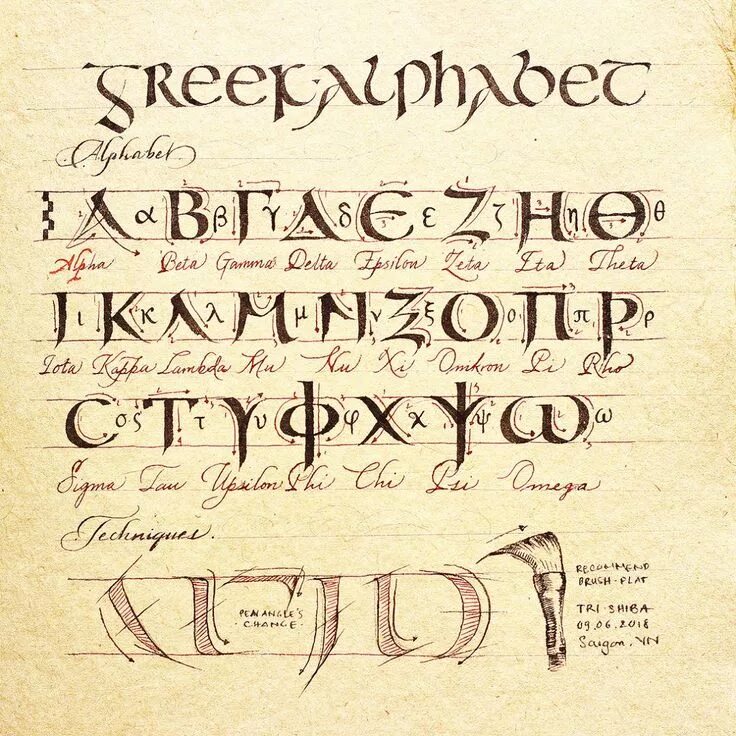 Greek·alphabet
Alphabet
Α α Β β Γ γ Δ δ Ε ε Ζ ζ Η η Θ θ
Alpha Beta Gamma Delta Epsilon Zeta Eta Theta
Ι ι Κ κ Λ λ Μ μ Ν ν Ξ ξ Ο ο Π π Ρ ρ
Iota Kappa Lambda Mu Nu Xi Omkron Pi Rho
C σς Τ τ Υ υ Φ φ Χ χ Ψ ψ ω ω
Sigma Tau Upsilon Phi Chi Psi Omega
Techniques.
PEN ANGLE'S
·CHANGE·
RECOMMEND
BRUSH·FLAT
TRI·SHIBA
09.06.2018
Saigon.VN